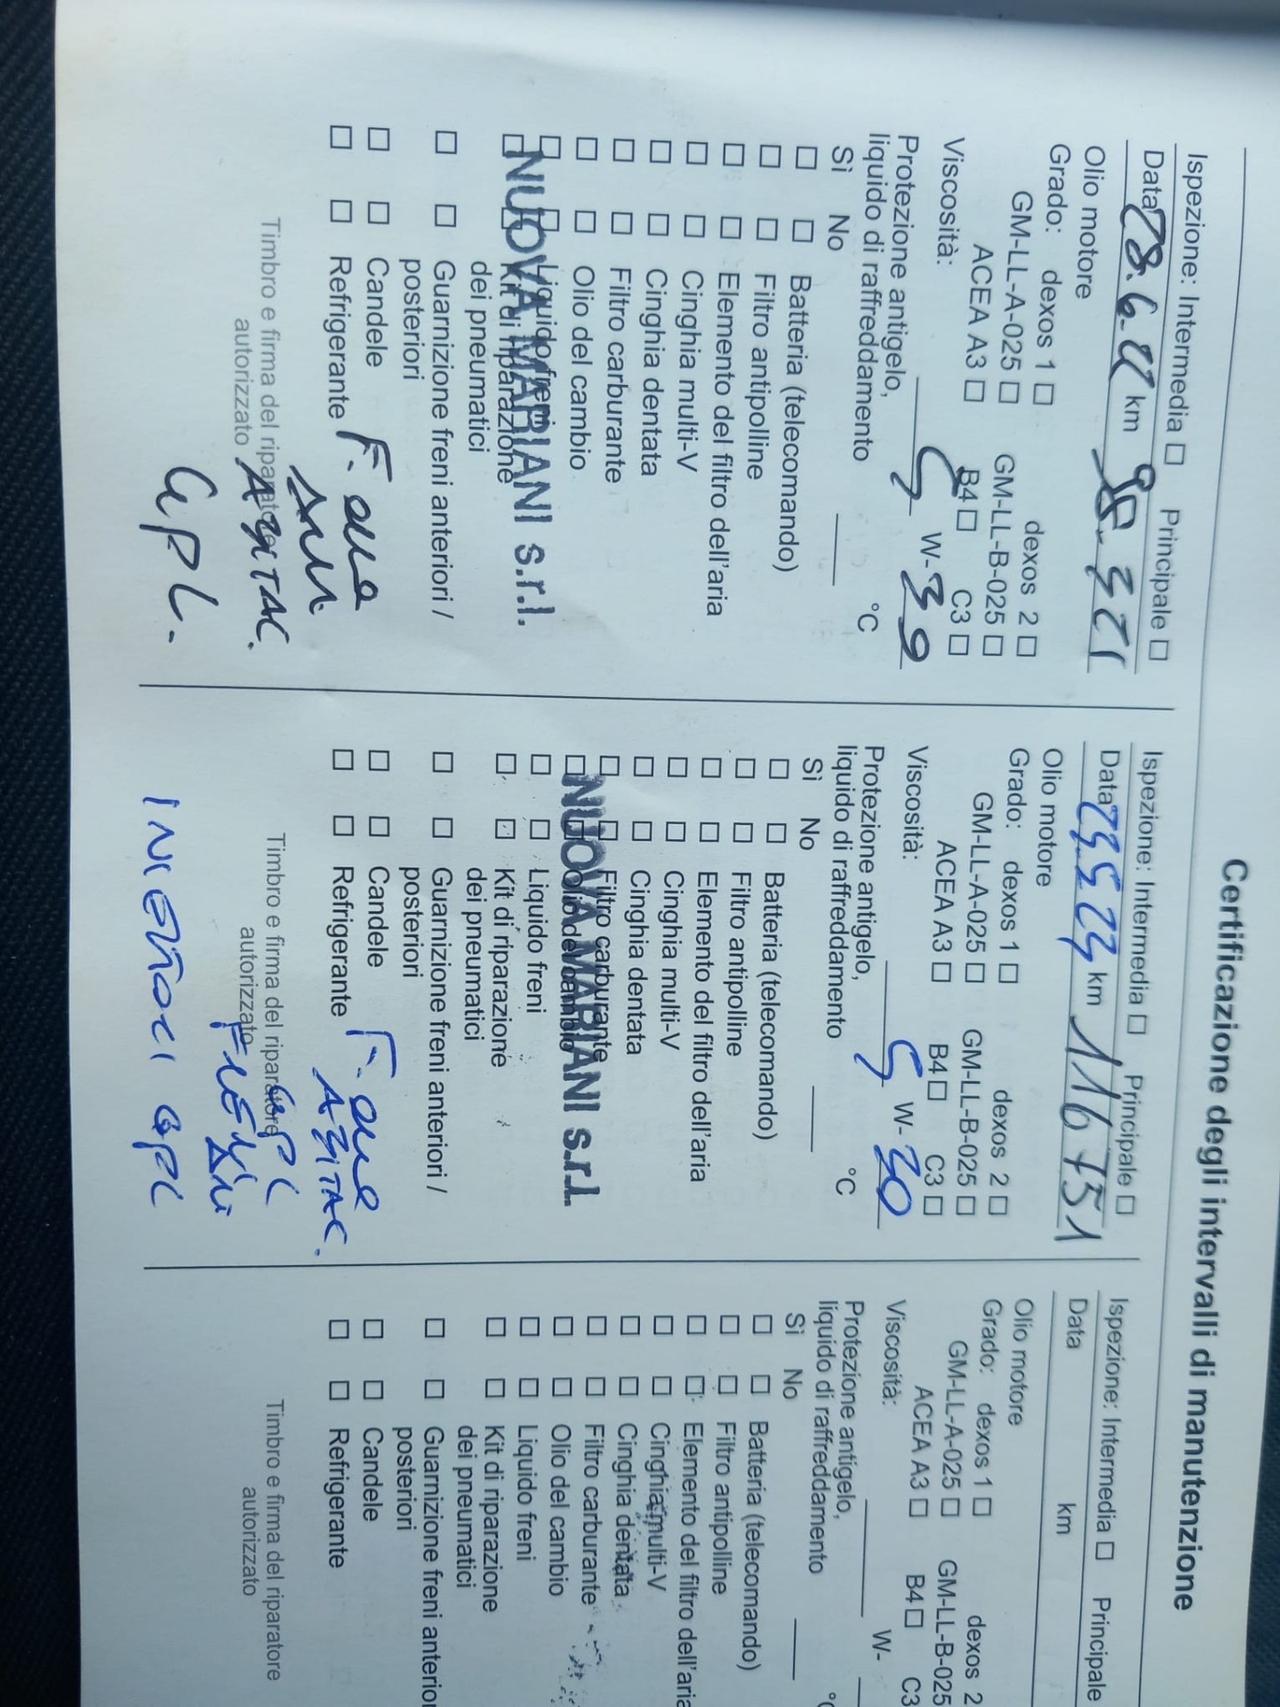 Certificazione degli intervalli di manutenzione
Ispezione: Intermedia □ Principale □
Data 28.6.22 km 98.321
Olio motore
Grado: dexos 1 □ dexos 2 □
GM-LL-A-025 □ GM-LL-B-025 □
ACEA A3 □ B4 □ C3 □
Viscosità: 5 W-30
Protezione antigelo,
liquido di raffreddamento °C
Sì No
□ □ Batteria (telecomando)
□ □ Filtro antipolline
□ □ Elemento del filtro dell'aria
□ □ Cinghia multi-V
□ □ Cinghia dentata
□ □ Filtro carburante
□ □ Olio del cambio
□ □ Liquido freni
□ □ Kit di riparazione
dei pneumatici
NUOVA MARIANI s.r.l.
□ □ Guarnizione freni anteriori /
posteriori
□ □ Candele
□ □ Refrigerante
Timbro e firma del riparatore
autorizzato
GPL.
Ispezione: Intermedia □ Principale □
Data 29.5.23 km 116751
Olio motore
Grado: dexos 1 □ dexos 2 □
GM-LL-A-025 □ GM-LL-B-025 □
ACEA A3 □ B4 □ C3 □
Viscosità: 5 W-30
Protezione antigelo,
liquido di raffreddamento °C
Sì No
□ □ Batteria (telecomando)
□ □ Filtro antipolline
□ □ Elemento del filtro dell'aria
□ □ Cinghia multi-V
□ □ Cinghia dentata
□ □ Filtro carburante
□ □ Olio del cambio
NUOVA MARIANI s.r.l.
□ □ Liquido freni
□ □ Kit di riparazione
dei pneumatici
□ □ Guarnizione freni anteriori /
posteriori
□ □ Candele
□ □ Refrigerante
Timbro e firma del riparatore
autorizzato
GPL
INIETTORI GPL
Ispezione: Intermedia □ Principale
Data km
Olio motore
Grado: dexos 1 □ dexos 2
GM-LL-A-025 □ GM-LL-B-025
ACEA A3 □ B4 □ C3
Viscosità: W-
Protezione antigelo,
liquido di raffreddamento °
Sì No
□ □ Batteria (telecomando)
□ □ Filtro antipolline
□ □ Elemento del filtro dell'aria
□ □ Cinghia multi-V
□ □ Cinghia dentata
□ □ Filtro carburante
□ □ Olio del cambio
□ □ Liquido freni
□ □ Kit di riparazione
dei pneumatici
□ □ Guarnizione freni anterior
posteriori
□ □ Candele
□ □ Refrigerante
Timbro e firma del riparatore
autorizzato